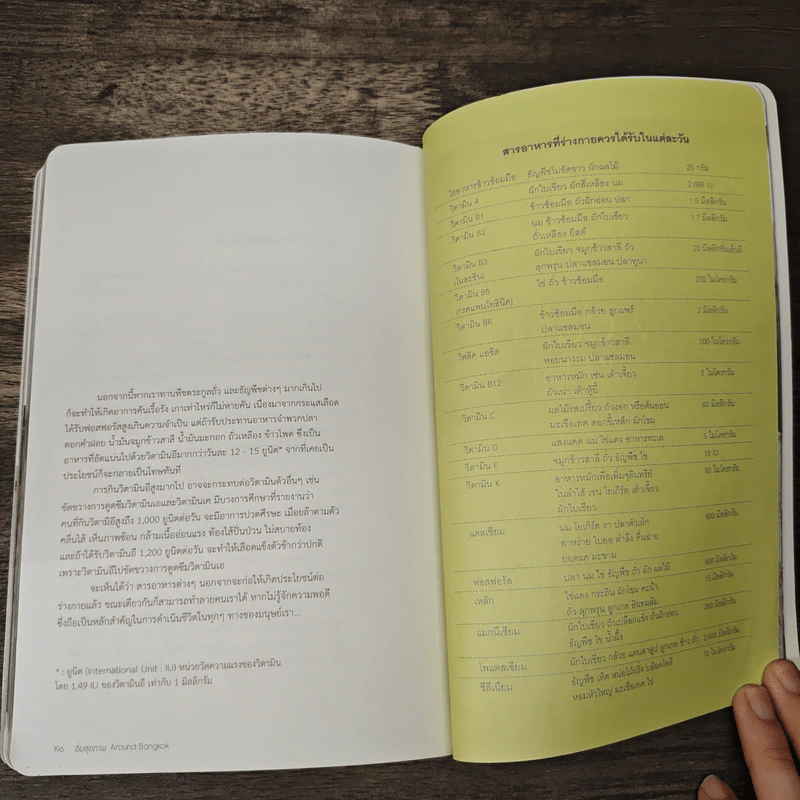 นอกจากนี้หากเราทานพืชตระกูลถั่ว และธัญพืชต่างๆ มากเกินไป
ก็จะทำให้เกิดอาการคันเรื้อรัง เกาเท่าไหร่ก็ไม่หายคัน เนื่องมาจากกระแสเลือด
ได้รับฟอสฟอรัสสูงเกินความจำเป็น แต่ถ้ารับประทานอาหารจำพวกปลา
ดอกคำฝอย น้ำมันจมูกข้าวสาลี น้ำมันมะกอก ถั่วเหลือง ข้าวโพด ซึ่งเป็น
อาหารที่อัดแน่นไปด้วยวิตามินอีมากกว่าวันละ 12 - 15 ยูนิต* จากที่เคยเป็น
ประโยชน์ก็จะกลายเป็นโทษทันที
การกินวิตามินอีสูงมากไป อาจจะกระทบต่อวิตามินตัวอื่นๆ เช่น
ขัดขวางการดูดซึมวิตามินเอและวิตามินเค มีบางการศึกษาที่รายงานว่า
คนที่กินวิตามีอีสูงถึง 1,000 ยูนิตต่อวัน จะมีอาการปวดศีรษะ เมื่อยล้าตามตัว
คลื่นไส้ เห็นภาพซ้อน กล้ามเนื้ออ่อนแรง ท้องไส้ปั่นป่วน ไม่สบายท้อง
และถ้าได้รับวิตามินอี 1,200 ยูนิตต่อวัน จะทำให้เลือดแข็งตัวช้ากว่าปกติ
เพราะวิตามินอีไปขัดขวางการดูดซึมวิตามินเอ
จะเห็นได้ว่า สารอาหารต่างๆ นอกจากจะก่อให้เกิดประโยชน์ต่อ
ร่างกายแล้ว ขณะเดียวกันก็สามารถทำลายคนเราได้ หากไม่รู้จักความพอดี
ซึ่งถือเป็นหลักสำคัญในการดำเนินชีวิตในทุกๆ ทางของมนุษย์เรา...
* : ยูนิต (International Unit : IU) หน่วยวัดความแรงของวิตามิน
โดย 1.49 IU ของวิตามินอี เท่ากับ 1 มิลลิกรัม
196 อิ่มสุขภาพ Around Bangkok
สารอาหารที่ร่างกายควรได้รับในแต่ละวัน
ใยอาหารข้าวซ้อมมือ ธัญพืชไม่ขัดขาว ผักผลไม้ 25 กรัม
วิตามิน A ผักใบเขียว ผักสีเหลือง นม 2,665 IU
วิตามิน B1 ข้าวซ้อมมือ ถั่วฝักอ่อน ปลา 1.5 มิลลิกรัม
วิตามิน B2 นม ข้าวซ้อมมือ ผักใบเขียว 1.7 มิลลิกรัม
ถั่วเหลือง ยีสต์
วิตามิน B3 ผักใบเขียว จมูกข้าวสาลี ถั่ว 20 มิลลิกรัมเอ็นอี
(ไนอะซิน) ลูกพรุน ปลาแซลมอน ปลาทูนา
วิตามิน B5 ไข่ ถั่ว ข้าวซ้อมมือ 200 ไมโครกรัม
(กรดแพนโทธินิค)
วิตามิน B6 ข้าวซ้อมมือ กล้วย ลูกแพร์ 2 มิลลิกรัม
ปลาแซลมอน
โฟลิค แอซิด ผักใบเขียว จมูกข้าวสาลี 200 ไมโครกรัม
หอยนางรม ปลาแซลมอน
วิตามิน B12 อาหารหมัก เช่น เต้าเจี้ยว 2 ไมโครกรัม
ถั่วเน่า เต้าหู้ยี้
วิตามิน C ผลไม้รสเปรี้ยว ถั่วงอก หรือต้นอ่อน 60 มิลลิกรัม
มะเขือเทศ ดอกขี้เหล็ก ผักโขม
วิตามิน D แสงแดด นม ไข่แดง อาหารทะเล 5 ไมโครกรัม
วิตามิน E จมูกข้าวสาลี ถั่ว ธัญพืช ไข่ 15 IU
วิตามิน K อาหารหมักเพื่อเพิ่มจุลินทรีย์ 80 ไมโครกรัม
ในลำไส้ เช่น โยเกิร์ต เต้าเจี้ยว
ผักใบเขียว
แคลเซียม นม โยเกิร์ต งา ปลาตัวเล็ก 800 มิลลิกรัม
สาหร่าย ใบยอ ตำลึง คื่นฉ่าย
ยอดแค มะขาม
ฟอสฟอรัส ปลา นม ไข่ ธัญพืช ถั่ว ผัก ผลไม้ 800 มิลลิกรัม
เหล็ก ไข่แดง กระถิน ผักโขม คะน้า 15 มิลลิกรัม
ถั่ว ลูกพรุน ลูกเกด อินทผลัม
แมกนีเซียม ผักใบเขียว ถั่วเปลือกแข็ง ถั่วฝักอ่อน 350 มิลลิกรัม
ธัญพืช ไข่ น้ำผึ้ง
โพแตสเซียม ผักใบเขียว กล้วย แคนตาลูป ลูกเกด ข้าว ถั่ว 3,500 มิลลิกรัม
ซีลีเนียม ธัญพืช เห็ด หน่อไม้ฝรั่ง บล็อคโคลี่ 70 ไมโครกรัม
หอมหัวใหญ่ มะเขือเทศ ไข่